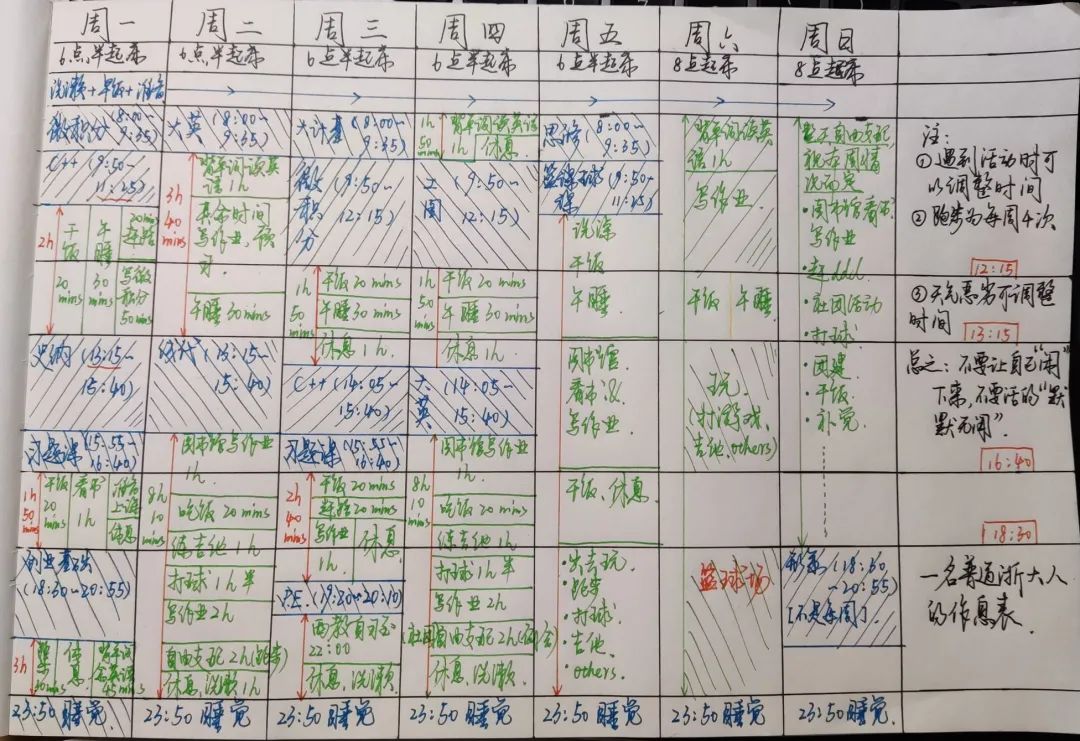 周一 周二 周三 周四 周五 周六 周日
6点半起床 6点半起床 6点半起床 6点半起床 6点半起床 8点起床 8点起床
洗漱+早饭+准备
微积分(8:00~
9:35)
C++(9:50~
11:25)
2h
干饭
20
mins
午睡
30
mins
20mins
写微
积分
50mins
史纲(13:15~
15:40)
习题课(15:55~
16:40)
1h
50
mins
干饭
20
mins
看书
1h
准备
上课
休息
创业基础
(18:30~20:55)
3h
跑步
休息
背单词
45mins
23:50睡觉
大英(8:00~
9:35)
3h
40
mins
背单词读英
语1h
其余时间
写作业,预
习.
午睡30mins
线代(13:15~
15:40)
8h
10
mins
图书馆写作业
1h.
吃饭20mins
练吉他1h
打球1h半
写作业2h
自由支配2h(跑步)
休息,洗漱1h
23:50睡觉
大计基(8:00~
9:35)
微积分(9:50~
12:15)
1h
50
mins
干饭20mins
午睡30mins
休息1h.
C++(14:05~
15:40)
习题课(15:55~
16:40)
2h
40
mins
干饭20mins
写作业
1h.
休息
P.E.(19:30~20:10)
西教自习至
22:00
休息,洗漱.
23:50睡觉
1h
50
mins
背单词读英语
1h
休息.
工图(9:50~
12:15)
1h
50
mins
干饭20mins
午睡30mins
休息1h.
大英(14:05~
15:40)
8h
10
mins
图书馆写作业
1h.
吃饭20mins
练吉他1h
打球1h半
写作业2h
自由支配2h
休息、洗漱1h
23:50睡觉
思修(8:00~
9:35)
篮球课(9:50~
11:25)
洗澡
干饭
午睡
图书馆
看书&
写作业
干饭、休息
·出去玩.
·跑步
·打球.
·吉他.
·others.
23:50睡觉
背单词读英
语1h
写作业.
干饭 午睡
玩.
(打游戏、
吉他,others)
篮球场
23:50睡觉
整天自由支配,
视本周情
况而定
·图书馆看书
写作业
·赶ddl
·社团活动
·打球.
·团建.
·干饭.
·补觉.
形策(18:30
~20:55)
[不是每周]
23:50睡觉.
注:
①遇到活动时可
以调整时间
②跑步为每周4次
12:15
③天气恶劣可调整
时间
13:15
总之:不要让自己“闲”
下来,不要活的“默
默无闻”.
16:40
18:30
一名普通浙大人
的作息表.